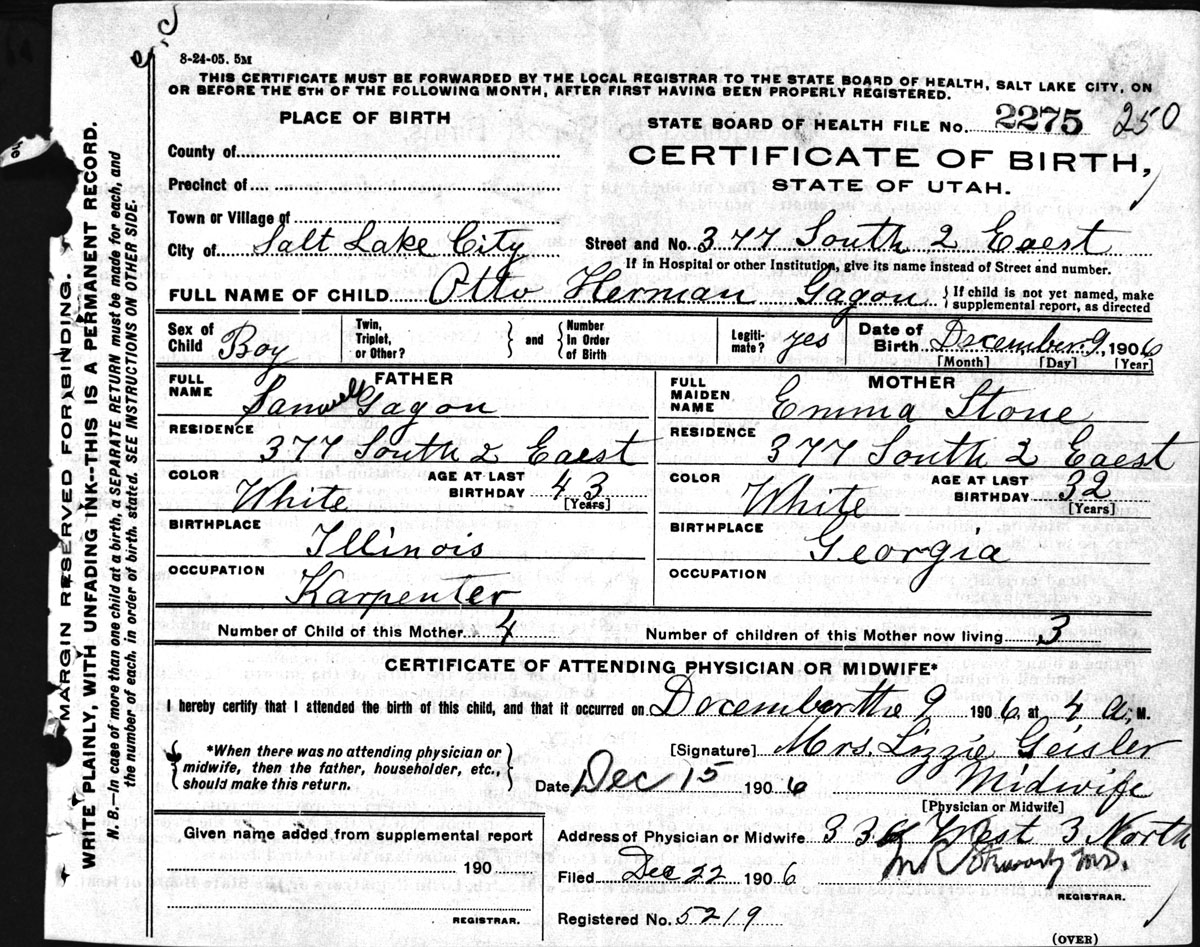 8-24-05. 5M
THIS CERTIFICATE MUST BE FORWARDED BY THE LOCAL REGISTRAR TO THE STATE BOARD OF HEALTH, SALT LAKE CITY, ON
OR BEFORE THE 5TH OF THE FOLLOWING MONTH, AFTER FIRST HAVING BEEN PROPERLY REGISTERED.
MARGIN RESERVED FOR BINDING.
WRITE PLAINLY, WITH UNFADING INK--THIS IS A PERMANENT RECORD.
N. B.—In case of more than one child at a birth, a SEPARATE RETURN must be made for each, and
the number of each, in order of birth, stated. SEE INSTRUCTIONS ON OTHER SIDE.
PLACE OF BIRTH
County of
Precinct of
Town or Village of
City of Salt Lake City
STATE BOARD OF HEALTH FILE No. 2275 250
CERTIFICATE OF BIRTH,
STATE OF UTAH.
Street and No. 377 South 2 Eaest
If in Hospital or other Institution, give its name instead of Street and number.
FULL NAME OF CHILD Otto Herman Gagon { If child is not yet named, make
supplemental report, as directed
Sex of Child Boy
Twin, Triplet, or Other? } and { Number In Order of Birth
Legitimate? yes
Date of Birth December 9, 1906
[Month] [Day] [Year]
FATHER
FULL NAME Samuell Gagon
RESIDENCE
377 South 2 Eaest
COLOR White AGE AT LAST BIRTHDAY 43
[Years]
BIRTHPLACE
Illinois
OCCUPATION
Karpenter
MOTHER
FULL MAIDEN NAME Emma Stone
RESIDENCE
377 South 2 Eaest
COLOR White AGE AT LAST BIRTHDAY 32
[Years]
BIRTHPLACE
Georgia
OCCUPATION
Number of Child of this Mother 4 Number of children of this Mother now living 3
CERTIFICATE OF ATTENDING PHYSICIAN OR MIDWIFE*
I hereby certify that I attended the birth of this child, and that it occurred on December the 9 1906, at 4 A. M.
{ *When there was no attending physician or
midwife, then the father, householder, etc.,
should make this return. }
[Signature] Mrs. Lizzie Geisler
Date, Dec 15 1906 Midwife
[Physician or Midwife]
Given name added from supplemental report
190
REGISTRAR.
Address of Physician or Midwife 336 West 3 North
Filed Dec 22 1906
REGISTRAR.
Registered No. 5219
(OVER)